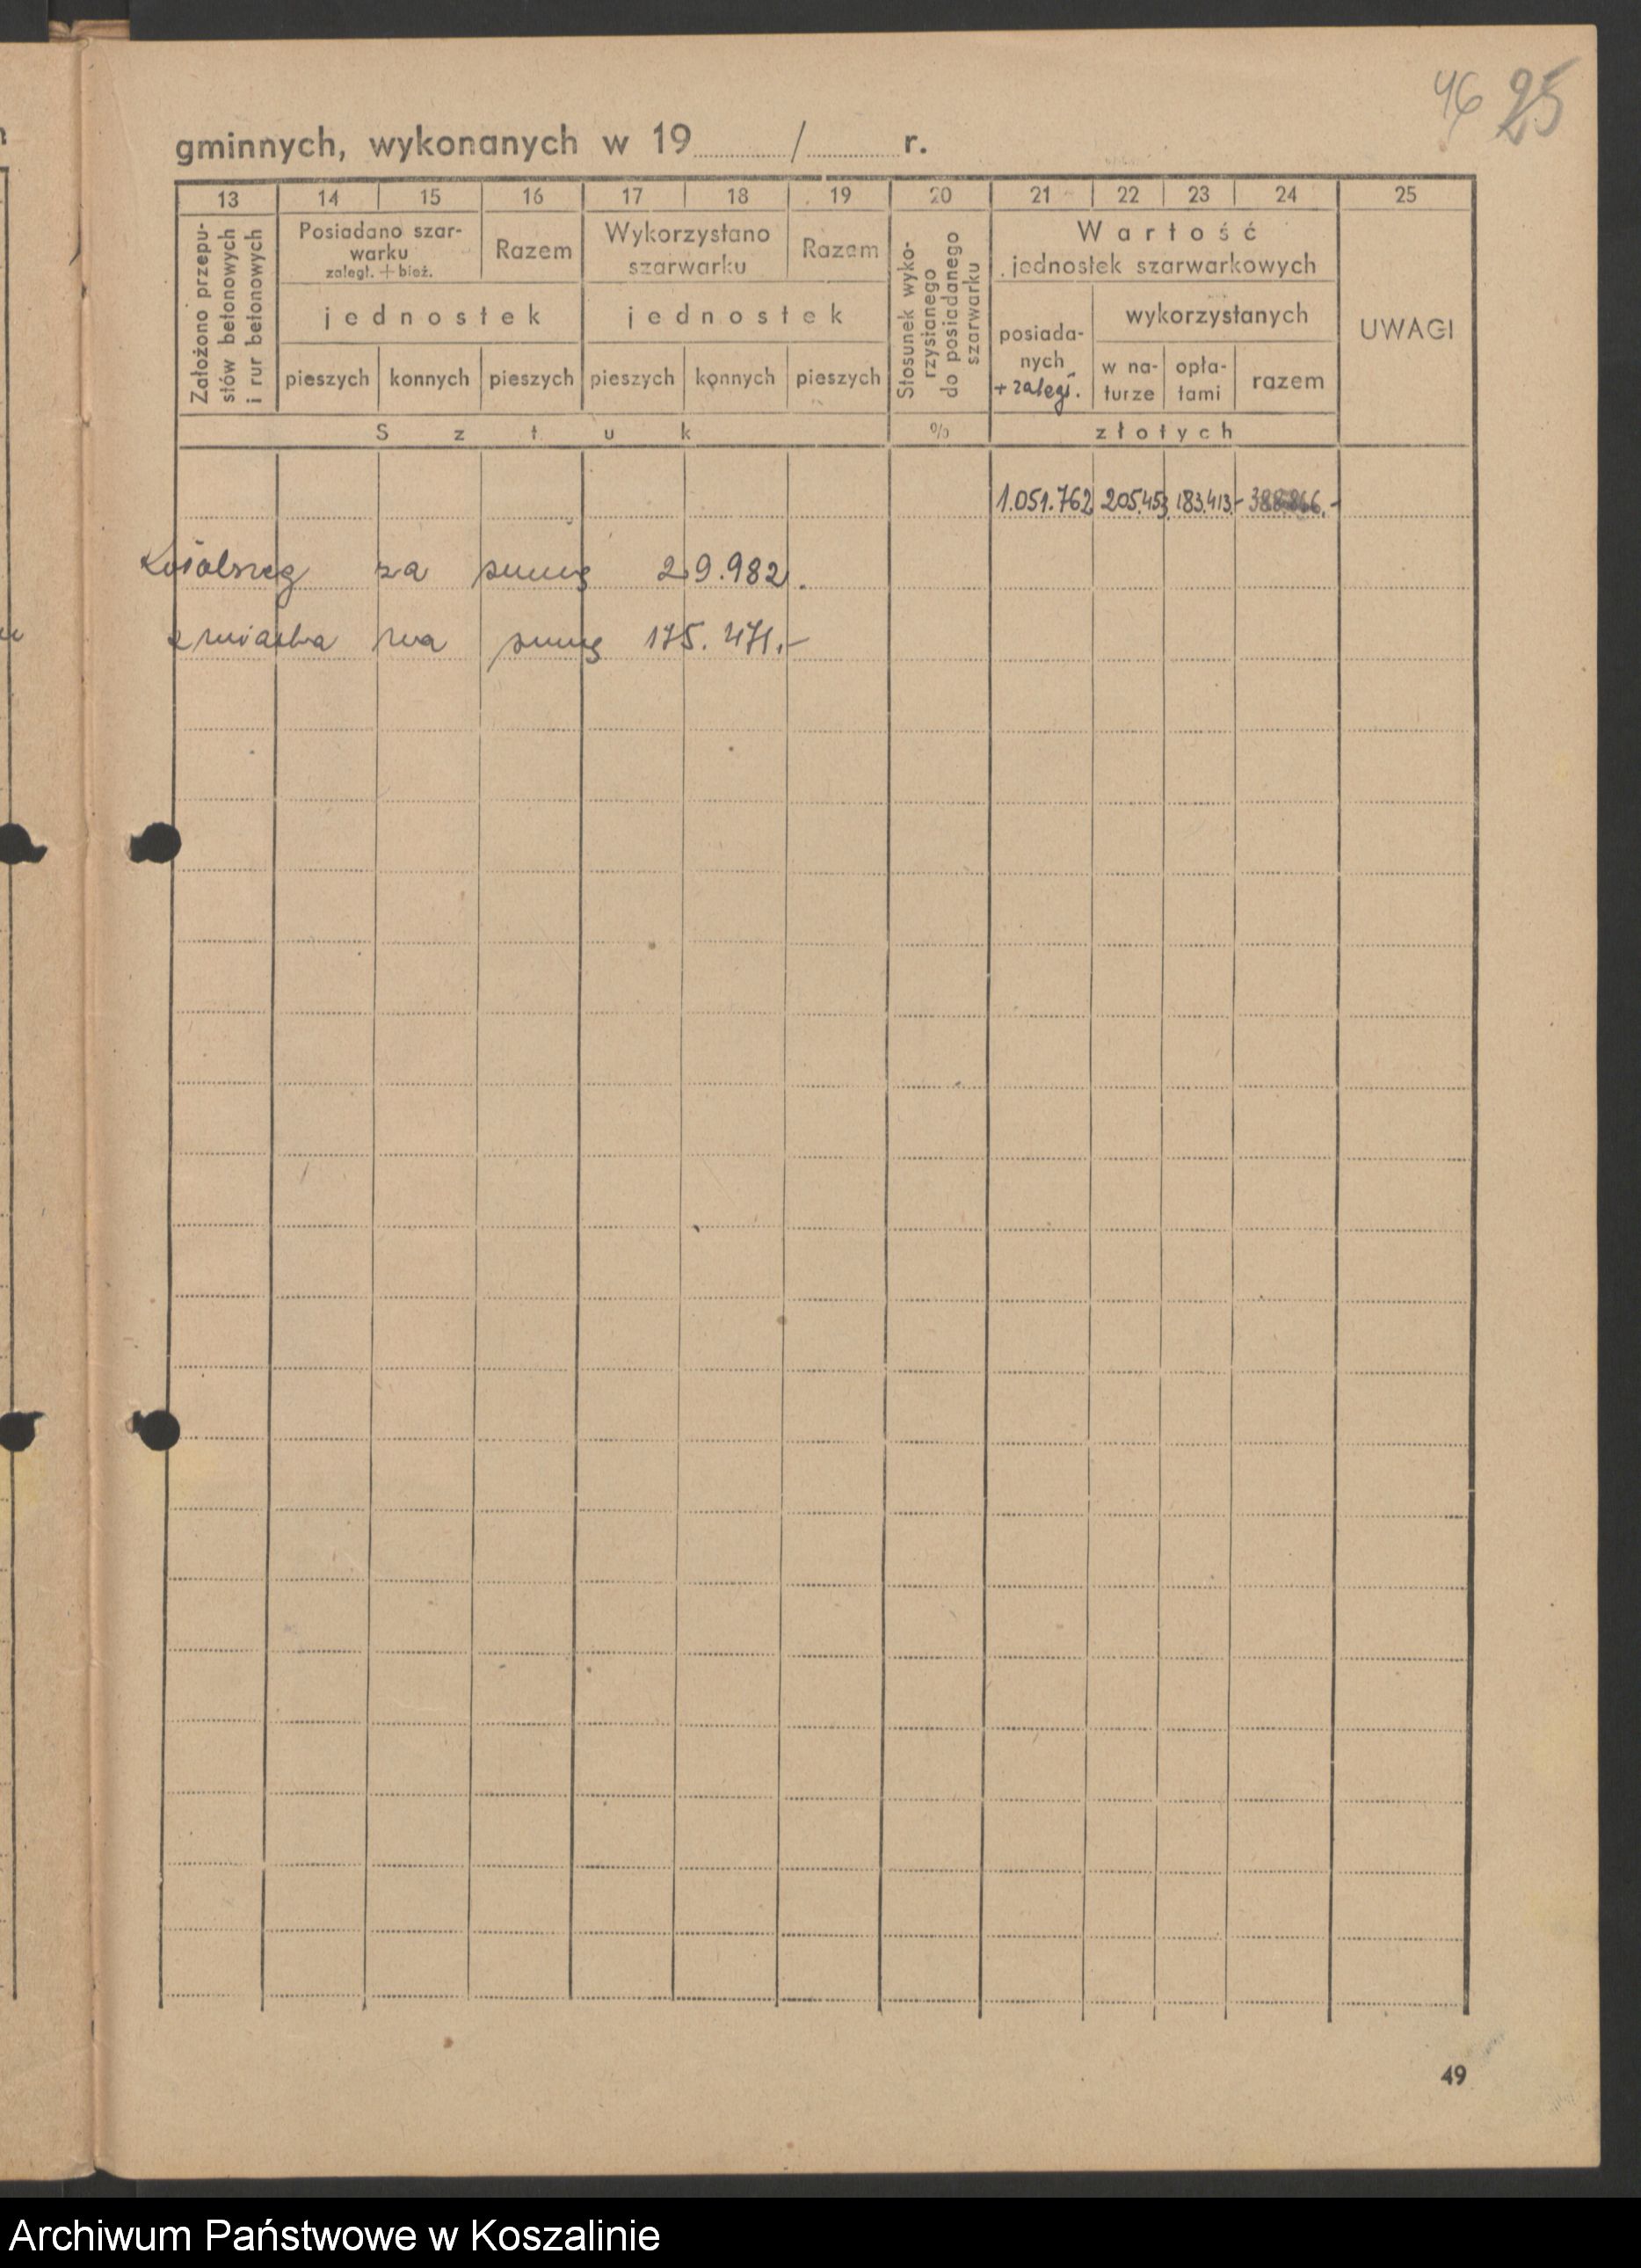 46 25
gminnych, wykonanych w 19 / r.
13 14 15 16 17 18 19 20 21 22 23 24 25
Założono przepu-
stów betonowych
i rur betonowych
Posiadano szar-
warku
zaległ. + bież.
Razem
Wykorzystano
szarwarku
Razem
Stosunek wyko-
rzystanego
do posiadanego
szarwarku
Wartość
jednostek szarwarkowych
jednostek
jednostek
posiada-
nych
+ zaległ.
wykorzystanych
UWAGI
pieszych konnych pieszych pieszych konnych pieszych
w na-
turze
opła-
tami
razem
Sztuk % złotych
1.051.762 205.453 183.413.- 388.866.-
za sumę 29.982.
na sumę 175.471.-
49
Archiwum Państwowe w Koszalinie